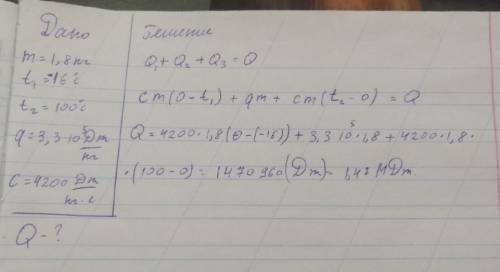 Дано
m = 1,8 кг
t₁ = -16°C
t₂ = 100°C
q = 3,3·10⁵ Дж/кг
C = 4200 Дж/кг·c
Q - ?
Решение
Q₁ + Q₂ + Q₃ = Q
cm(0 - t₁) + qm + cm(t₂ - 0) = Q
Q = 4200·1,8(0-(-16)) + 3,3·10⁵·1,8 + 4200·1,8·
·(100 - 0) = 1470960 (Дж) = 1,47 МДж.